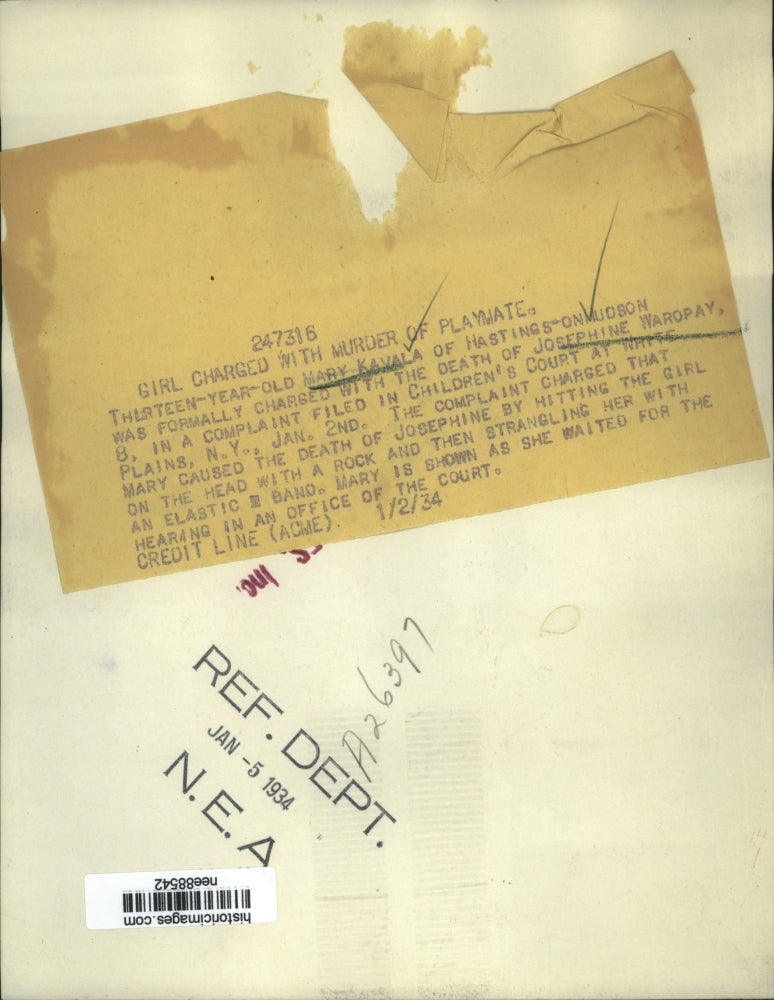 247316
GIRL CHARGED WITH MURDER OF PLAYMATE.
THIRTEEN-YEAR-OLD MARY KAVALA OF HASTINGS-ON-HUDSON
WAS FORMALLY CHARGED WITH THE DEATH OF JOSEPHINE WAROPAY,
8, IN A COMPLAINT FILED IN CHILDREN'S COURT AT WHITE
PLAINS, N.Y., JAN. 2ND. THE COMPLAINT CHARGED THAT
MARY CAUSED THE DEATH OF JOSEPHINE BY HITTING THE GIRL
ON THE HEAD WITH A ROCK AND THEN STRANGLING HER WITH
AN ELASTIC BAND. MARY IS SHOWN AS SHE WAITED FOR THE
HEARING IN AN OFFICE OF THE COURT.
CREDIT LINE (ACME) 1/2/34
S, Inc.
A26397
REF. DEPT.
JAN -5 1934
N. E. A
historicimages.com
nee88542